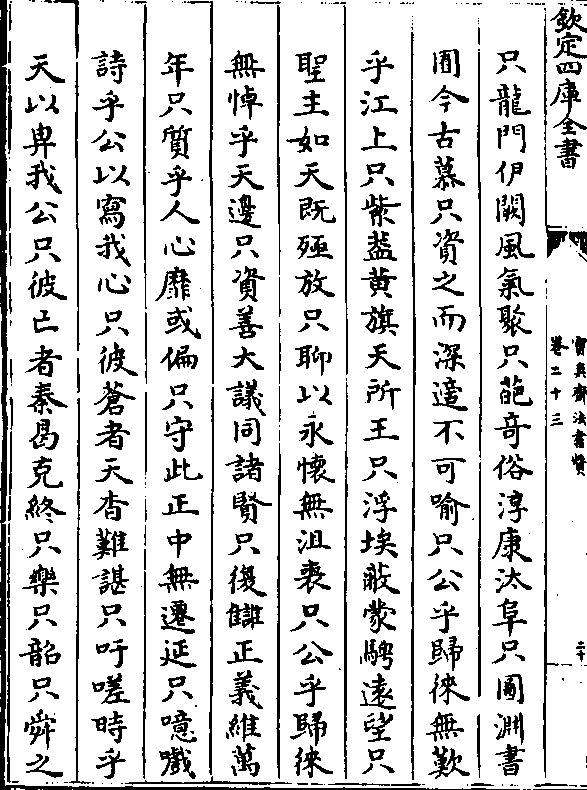 欽定四庫全書
寶真齋法書贊
卷二十三
二十
只龍門伊闕風氣聚只葩奇俗淳康汰阜只圖淵書
囿今古慕只資之而深邃不可喻只公乎歸徠無歎
乎江上只紫葢黄旗天所王只浮埃蔽蒙騁遠望只
聖主如天既殛放只聊以永懷無沮喪只公乎歸徠
無悼乎天邊只資善大議同諸賢只復讎正義維萬
年只質乎人心靡或偏只守此正中無遷延只噫戲
詩乎公以寫我心只彼蒼者天杳難諶只吁嗟時乎
天以畀我公只彼亡者秦曷克終只樂只韶只舜之